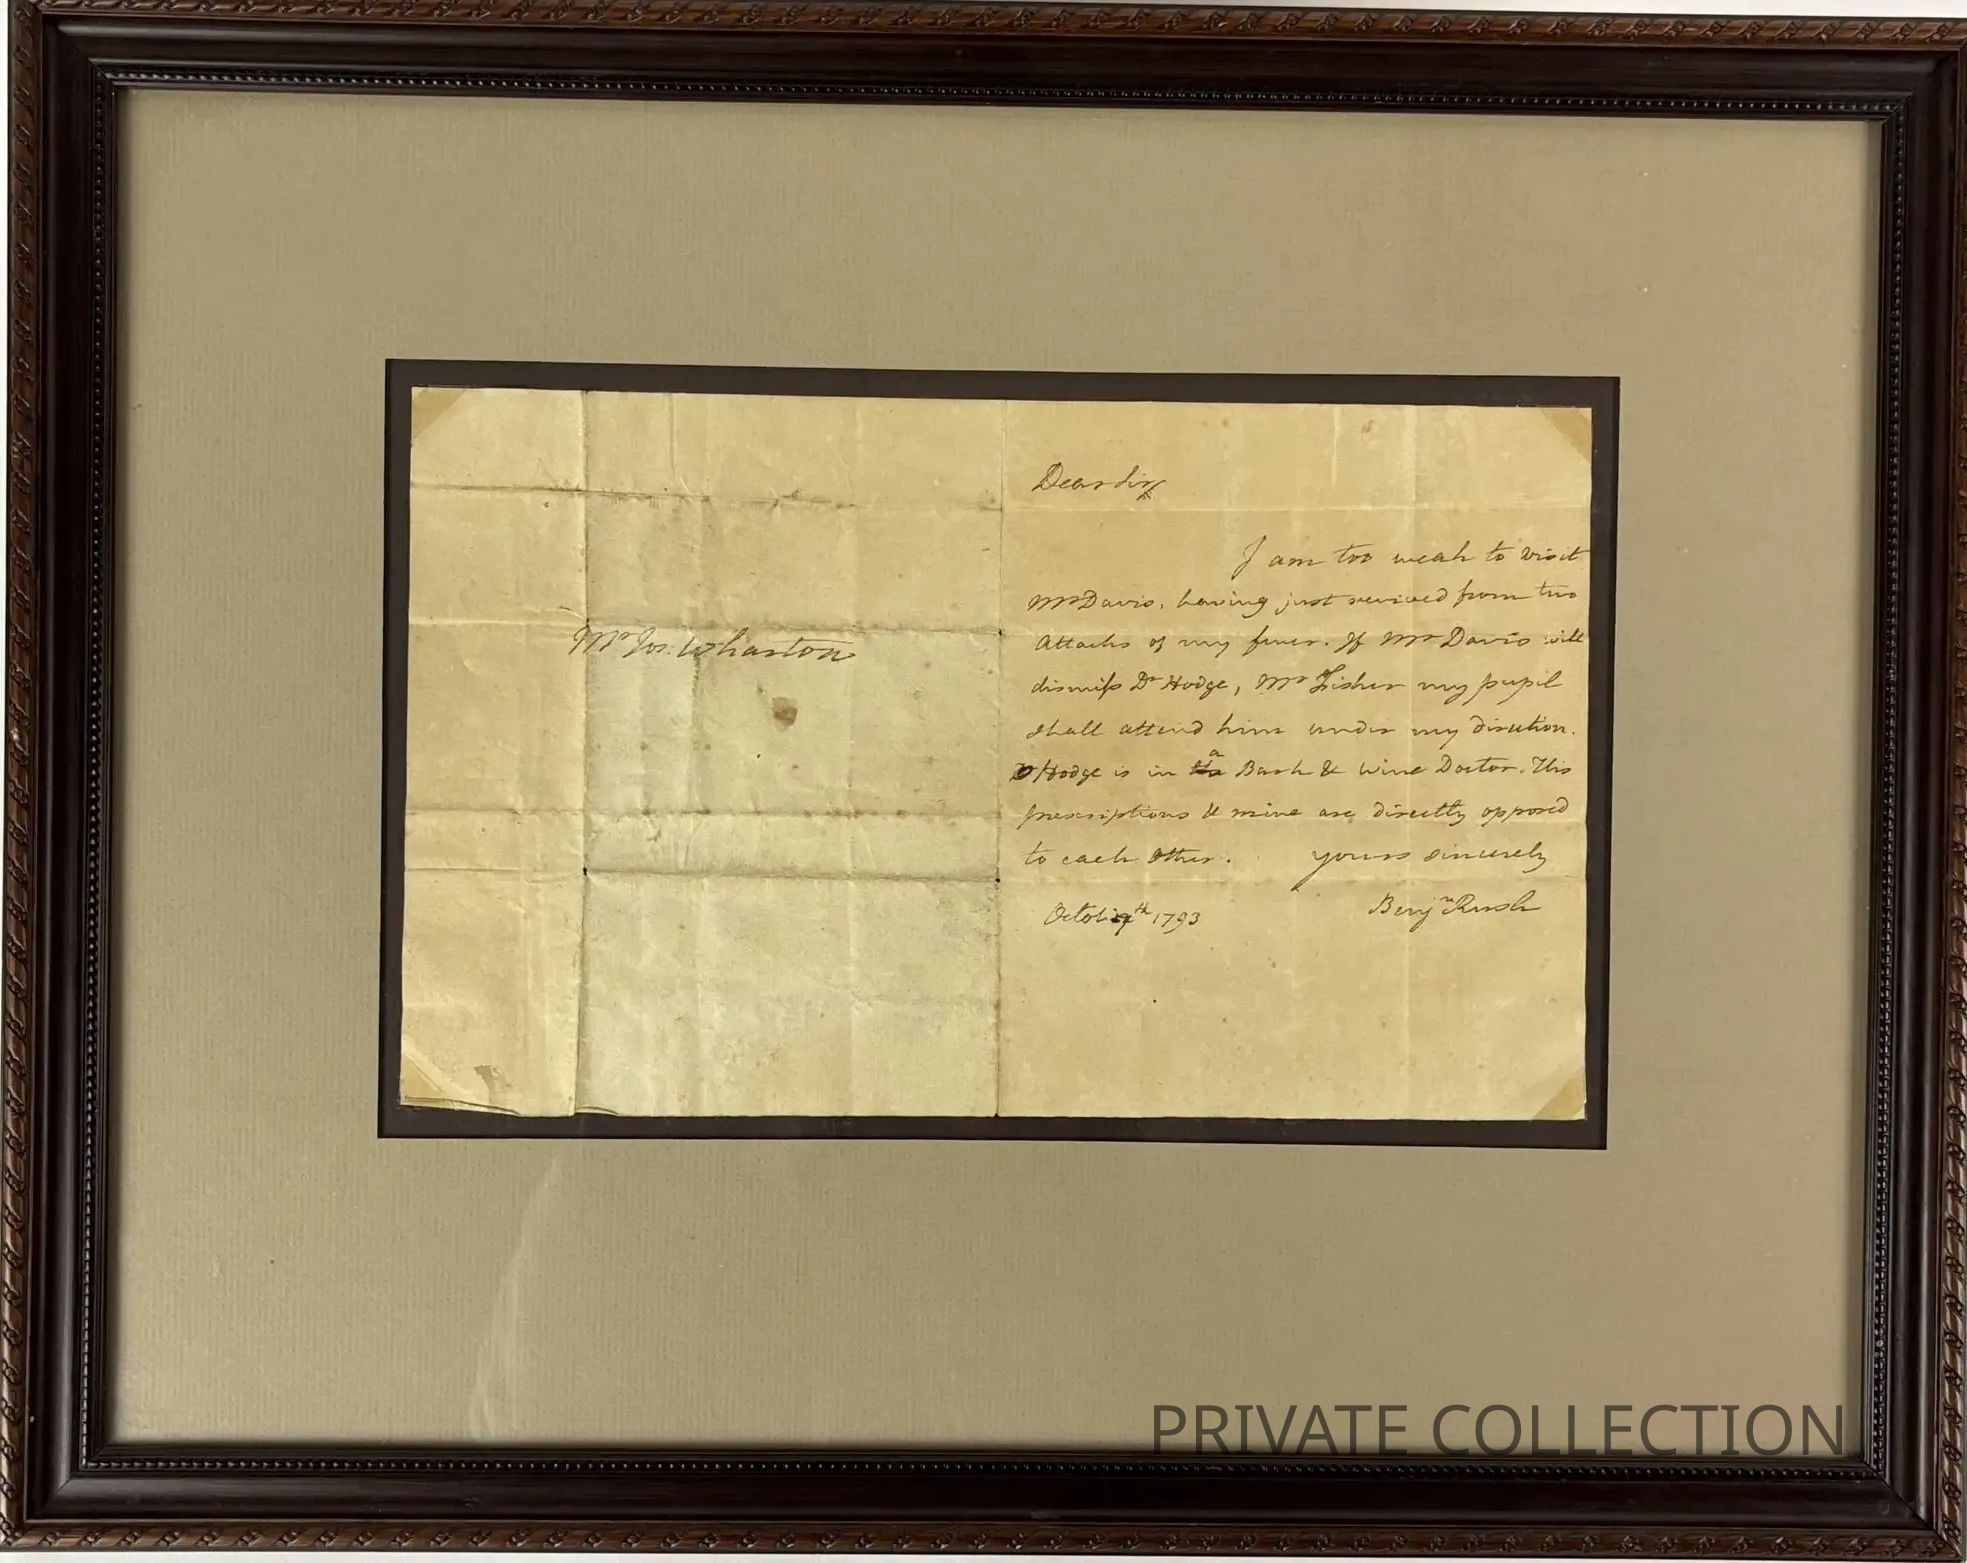 Mr Jos. Wharton
Dear Sir
I am too weak to visit
Mr Davis, having just revived from two
attacks of my fever. If Mr Davis will
dismiss Dr Hodge, Mr Fisher my pupil
shall attend him under my direction.
D Hodge is in a Bark & wine Doctor. His
prescriptions & mine are directly opposed
to each other. yours sincerely
Benjn Rush
1793
PRIVATE COLLECTION